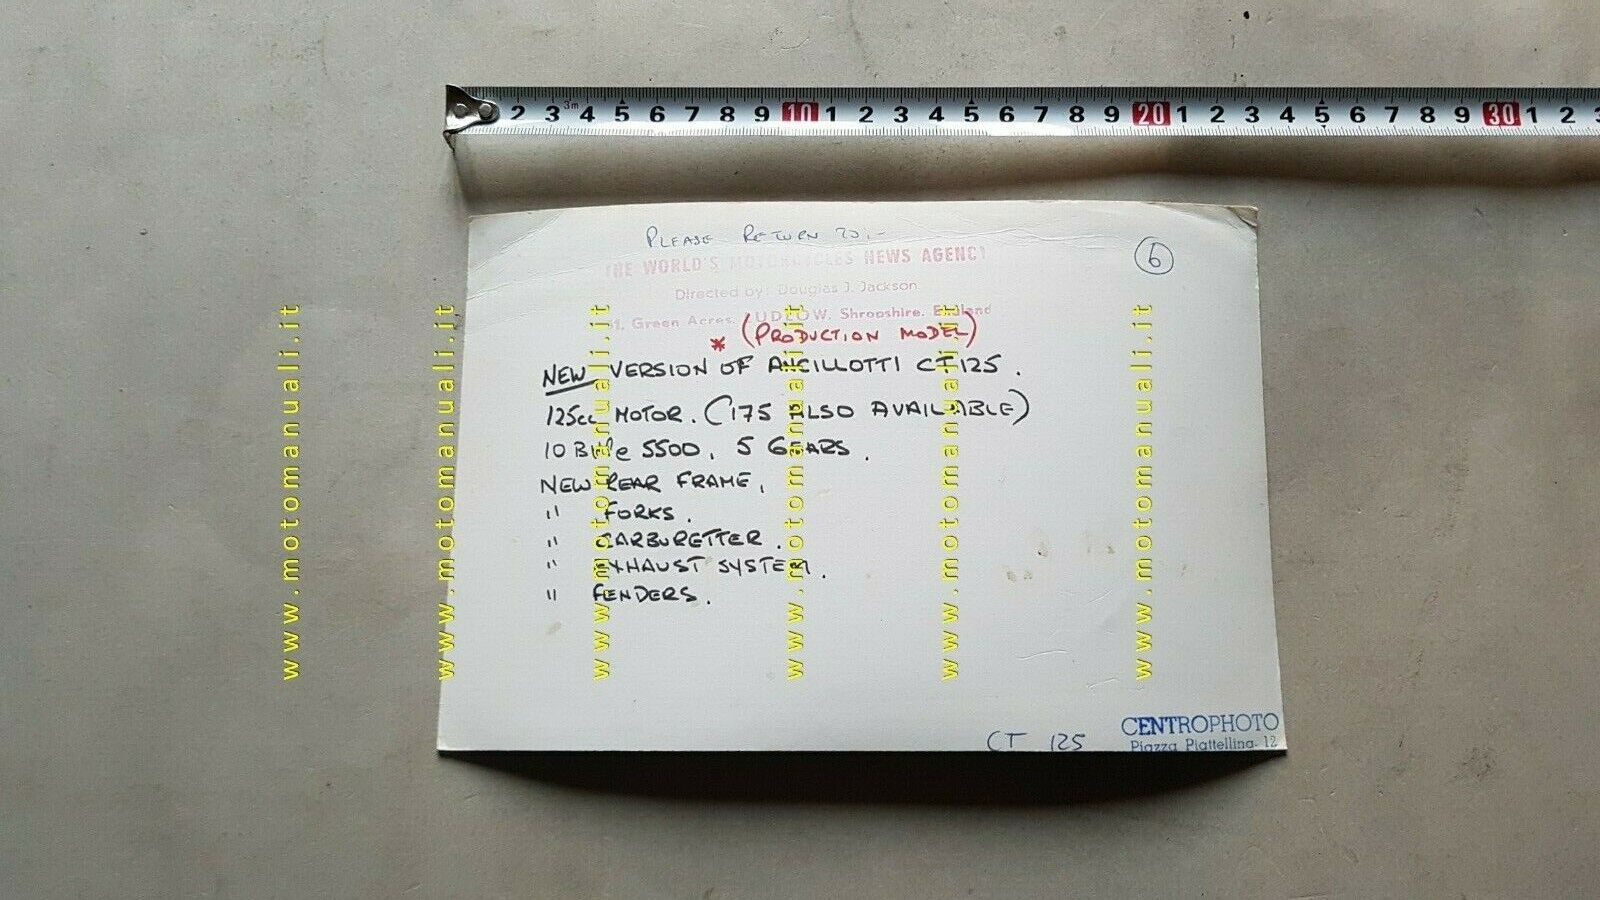 2 3 3m 4 5 6 7 8 9 10 1 2 3 4 5 6 7 8 9 20 1 2 3 4 5 6 7 8 9 30 1 2
PLEASE RETURN TO:-
THE WORLD'S MOTORCYCLES NEWS AGENCY
6
Directed by: Douglas J. Jackson
Green Acres, LUDLOW, Shropshire, England
* (PRODUCTION MODEL)
NEW VERSION OF ANCILLOTTI CT 125.
125cc MOTOR. (175 ALSO AVAILABLE)
10 5500. 5 GEARS.
NEW REAR FRAME.
" FORKS.
" CARBURETTER.
" EXHAUST SYSTEM.
" FENDERS.
CT 125
CENTROPHOTO
Piazza Piattellina, 12
www.motomanuali.it
www.motomanuali.it
www.motomanuali.it
www.motomanuali.it
www.motomanuali.it
www.motomanuali.it